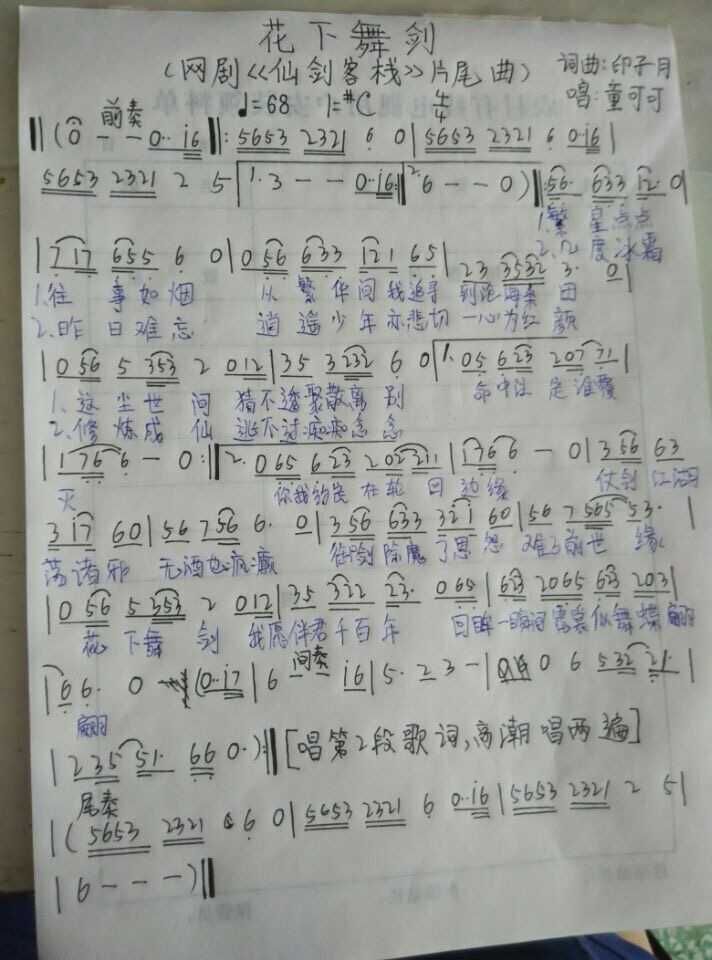 花下舞剑
(网剧《仙剑客栈》片尾曲)
词曲:印子月
唱:童可可
♩=68 1=#C 4/4
前奏
‖(0 - - 0·· i6‖: 5653 2321 6 0|5653 2321 6 0·i6|
5653 2321 2 5|1. 3 - - 0·i6:‖2. 6 - - 0)‖:56· 633 12· 0|
1.繁 星点点
2.几 度冰霜
|717 655 6 0|0 56 633 121 65|23 3532 3· 0|
1.往 事如烟 从繁华间我追寻 到沧海桑田
2.昨日难忘 逍遥少年亦悲切 一心为红颜
|0 56 5 353 2 012|35 3232 6 0|1. 05 623 20771|
1.这尘世间 猜不透聚散离别 命中注定难覆
2.修炼成仙 逃不过痴痴念念
|1766 - 0:‖2. 065 623 202211|1766 - 0|3 56 63
灭 你我约定在轮回边缘 仗剑江湖
3 17 60|56 756 6· 0|3 56 633 321 60|56 7 565 53·|
荡诸邪 无酒也疯癫 御剑除魔了恩怨 难了前世缘
|0 56 5 353 2 012|35 322 23· 065|623 2065 623 203|
花下舞剑 我愿伴君千百年 回眸一瞬间 霓裳似舞蝶翩
|66· 0 (0·i7|6 间奏 i6|5· 23 -|0 6 532 21·|
翩
|235 51· 66 0·):‖[唱第2段歌词,高潮唱两遍]
尾奏
|(5653 2321 6 0|5653 2321 6 0·i6|5653 2321 2 5|
|6 - - -)‖